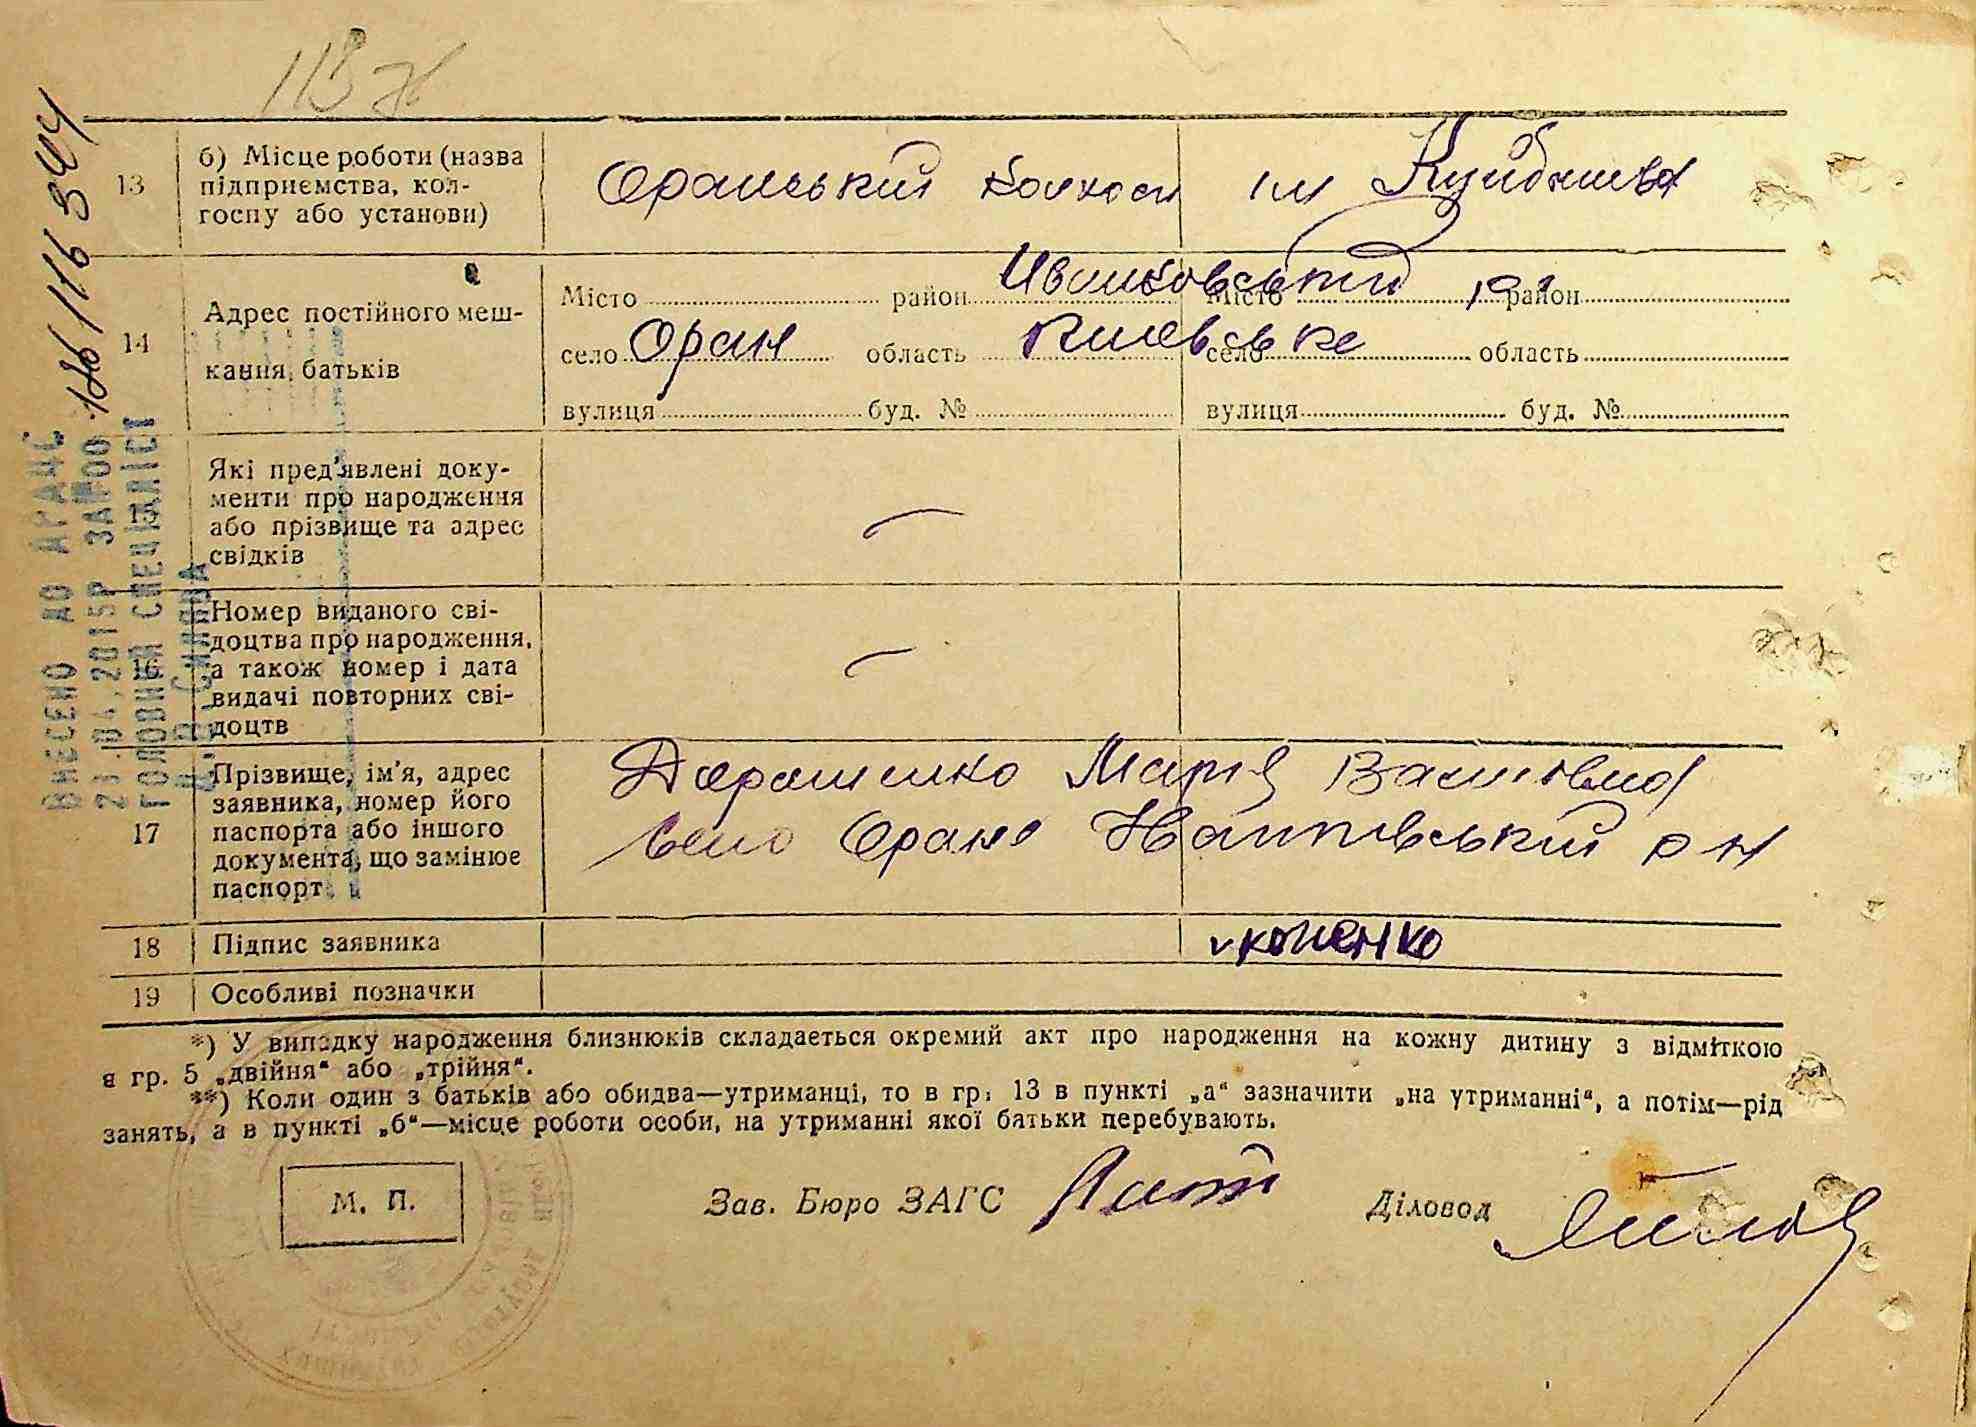 113
13
б) Місце роботи (назва
підприємства, кол-
госпу або установи)
Оранський колхосп ім Куйбишева
14
Адрес постійного меш-
кання батьків
Місто район Иванковський Місто р-н район
село Оране область Киевське село область
вулиця буд. № вулиця буд. №
15
Які пред'явлені доку-
менти про народження
або прізвище та адрес
свідків
—
16
Номер виданого сві-
доцтва про народження,
а також номер і дата
видачі повторних сві-
доцтв
—
17
Прізвище, ім'я, адрес
заявника, номер його
паспорта або іншого
документа, що замінює
паспорт
Дорошенко Марія Василівна
село Оране Іванківський р н
18 Підпис заявника
19 Особливі позначки
*) У випадку народження близнюків складається окремий акт про народження на кожну дитину з відміткою
в гр. 5 „двійня“ або „трійня“.
**) Коли один з батьків або обидва—утриманці, то в гр. 13 в пункті „а“ зазначити „на утриманні“, а потім—рід
занять, а в пункті „б“—місце роботи особи, на утриманні якої батьки перебувають.
М. П.
Зав. Бюро ЗАГС
Діловод
ВНЕСЕНО ДО ДРАЦС
23.04.2015Р ЗА №00
ГОЛОВНИЙ СПЕЦІАЛІСТ